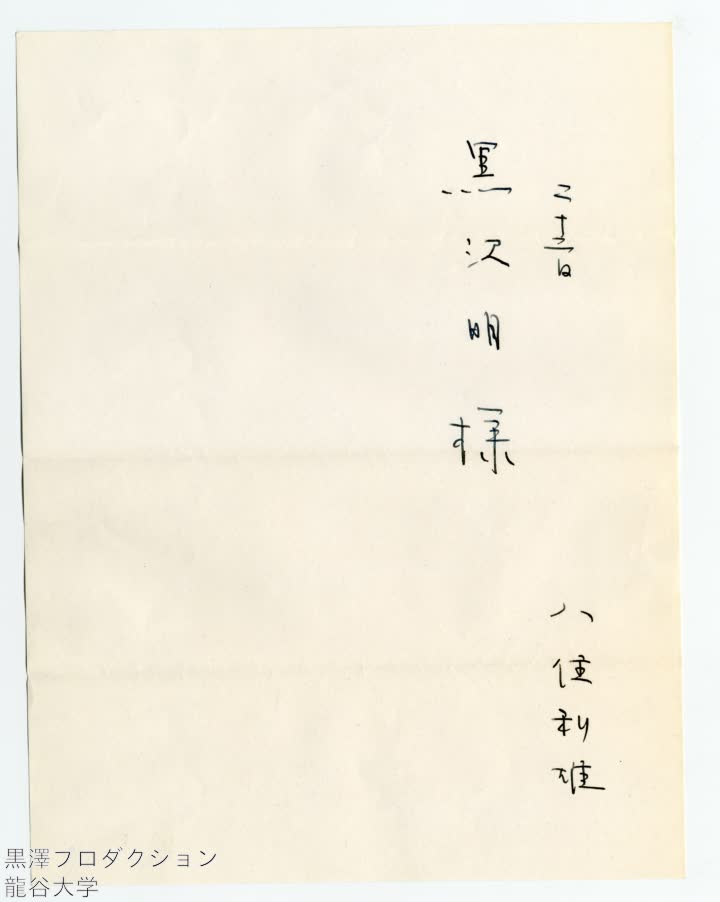 黒沢明様
八住利雄
黒澤プロダクション
龍谷大学